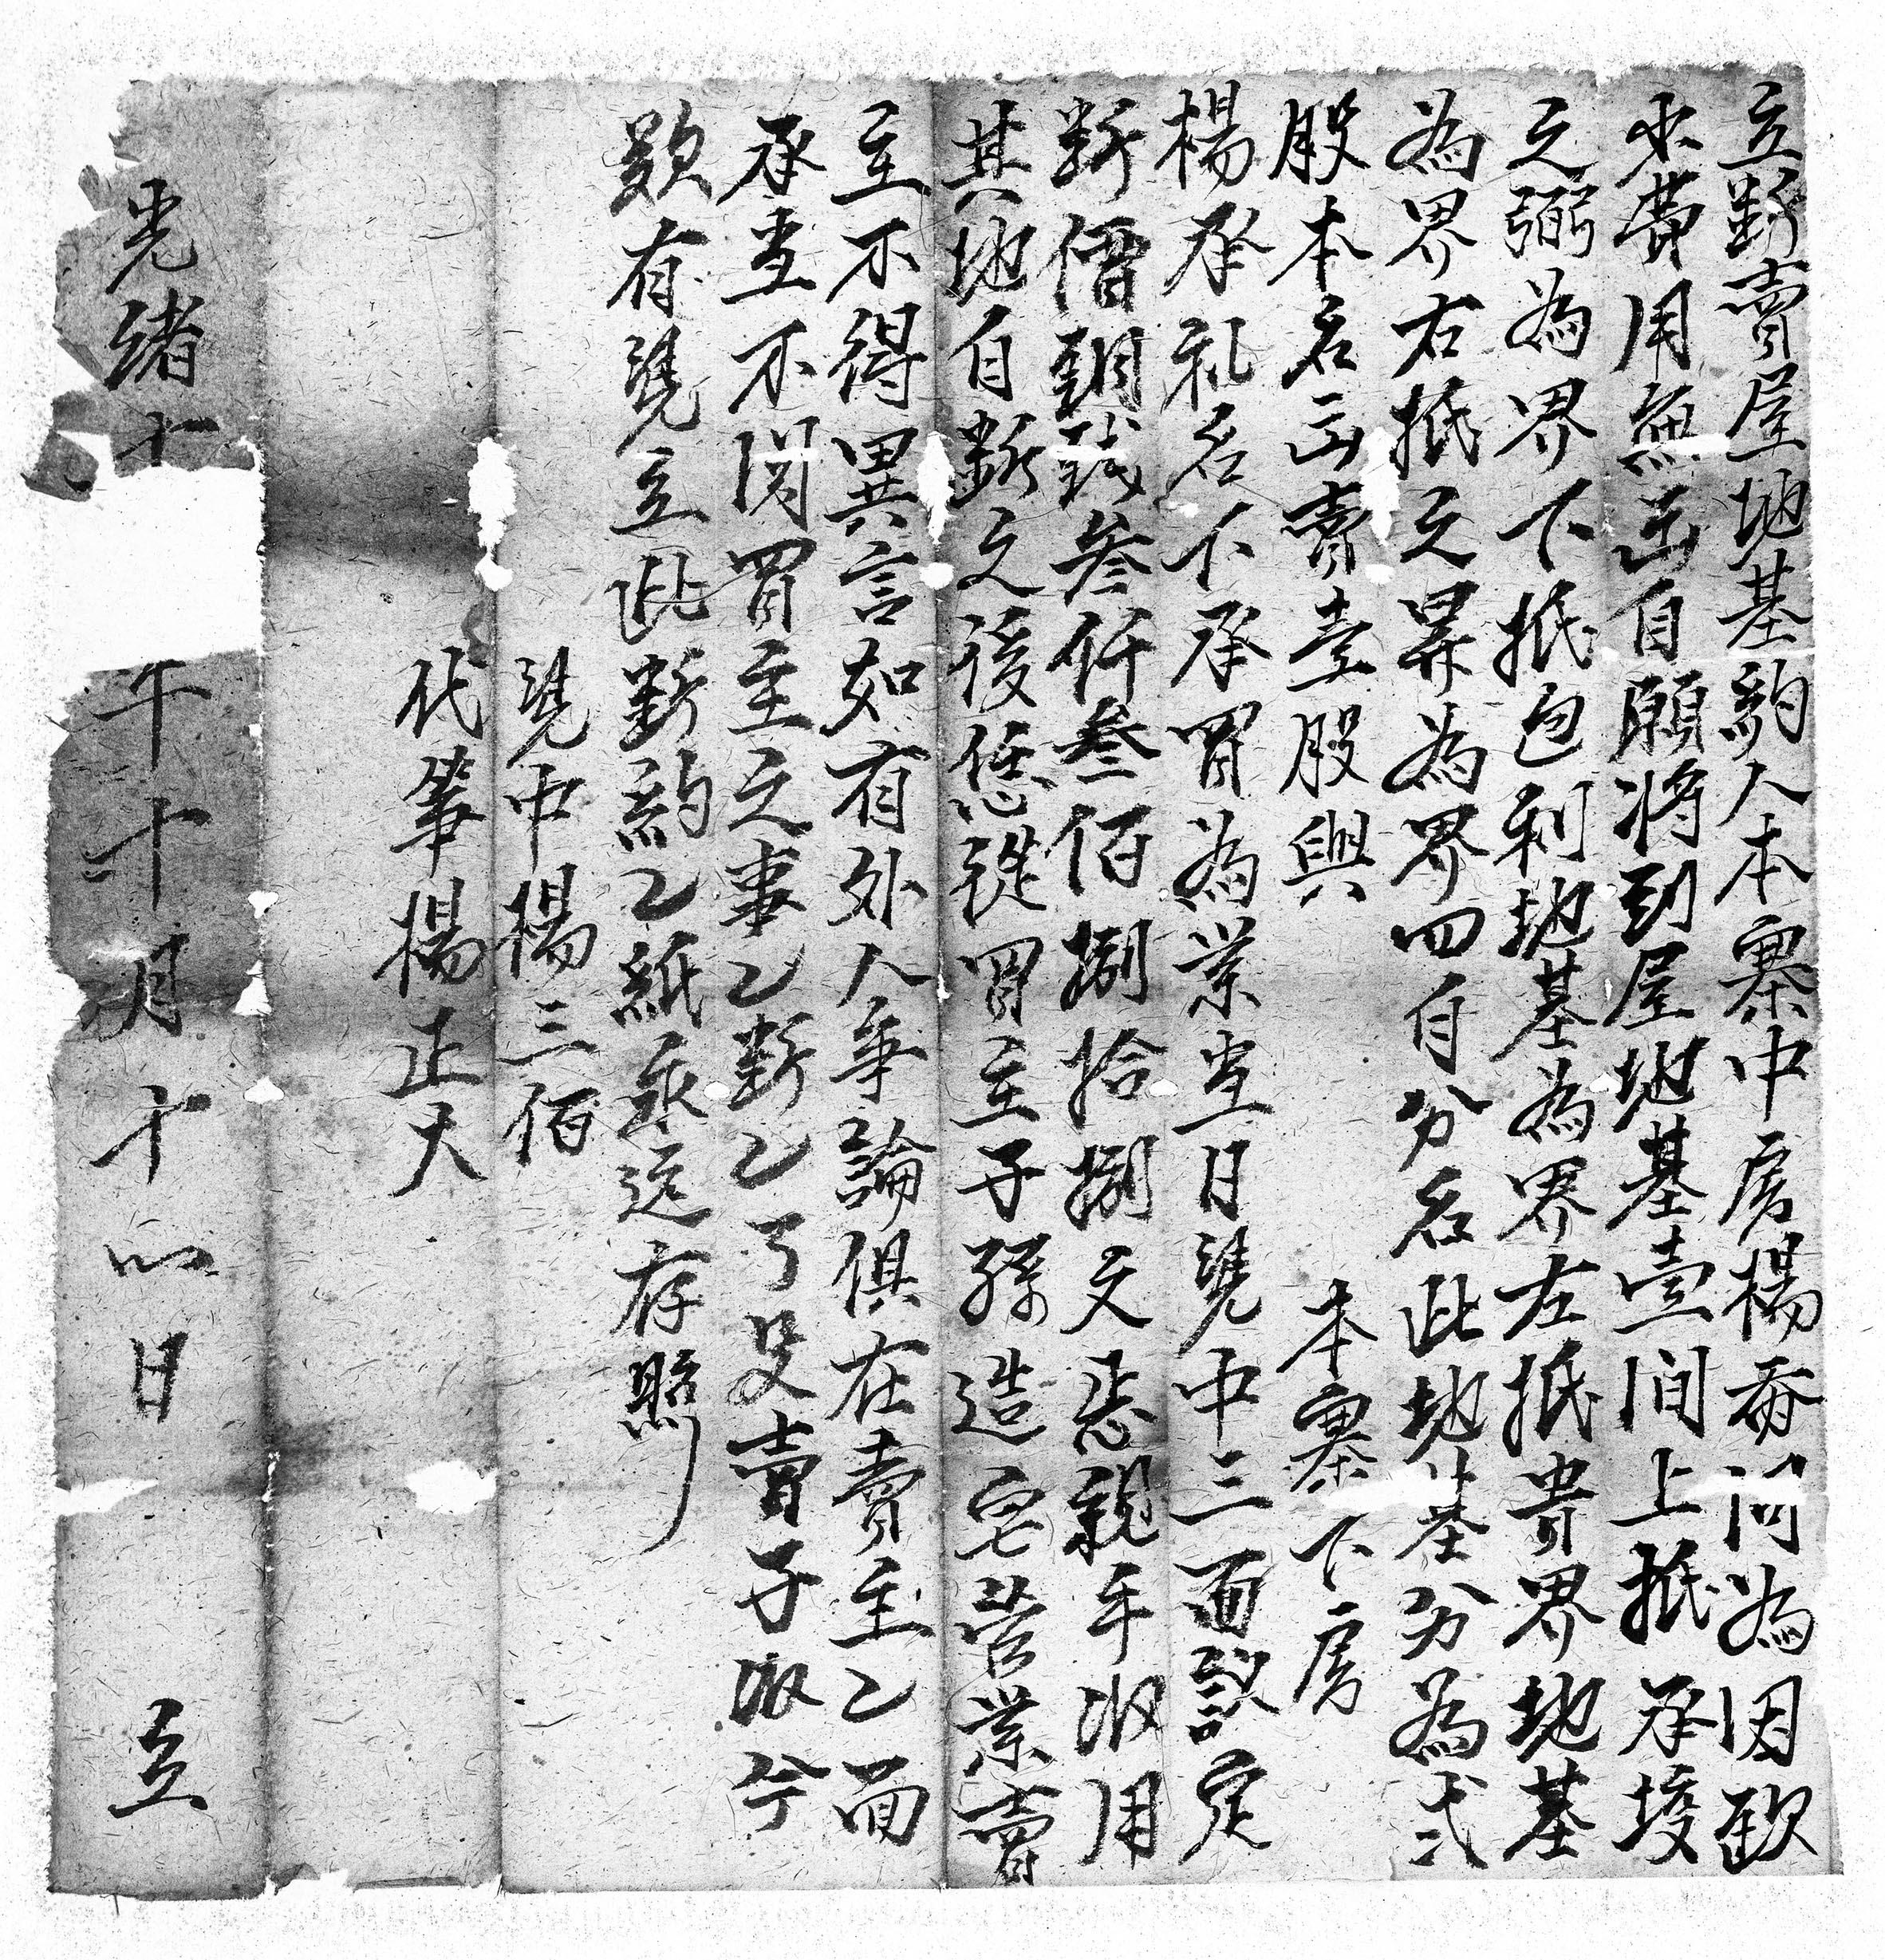 立斷賣屋地基約人本寨中房楊番河為因缺
水費用無出自願將到屋地基壹間上抵承墢
之弼為界下抵包利地基為界左抵貴界地基
為界右抵之昇為界四自分名此地基分為弍
股本名出賣壹股與 本寨下房
楊承礼名下承買為業当日憑中三面議定
斷價銅錢叁仟叁佰捌拾捌文悉親手收用
其地自斷之後恁從買主子孫造宅营業賣
主不得異言如有外人爭論俱在賣主乙面
承当不関買主之事乙斷乙了父賣子收今
欵有憑立此斷約乙紙永远存照
憑中楊三佰
代筆楊正大
光緒十 年十月十八日 立